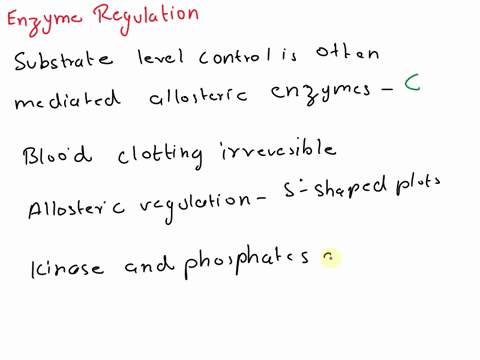 Enzyme Regulation
Substrate level control is often
mediated allosteric enzymes - C
Blood clotting irrevesible
Allosteric regulation - S-shaped plots
Kinase and phosphates